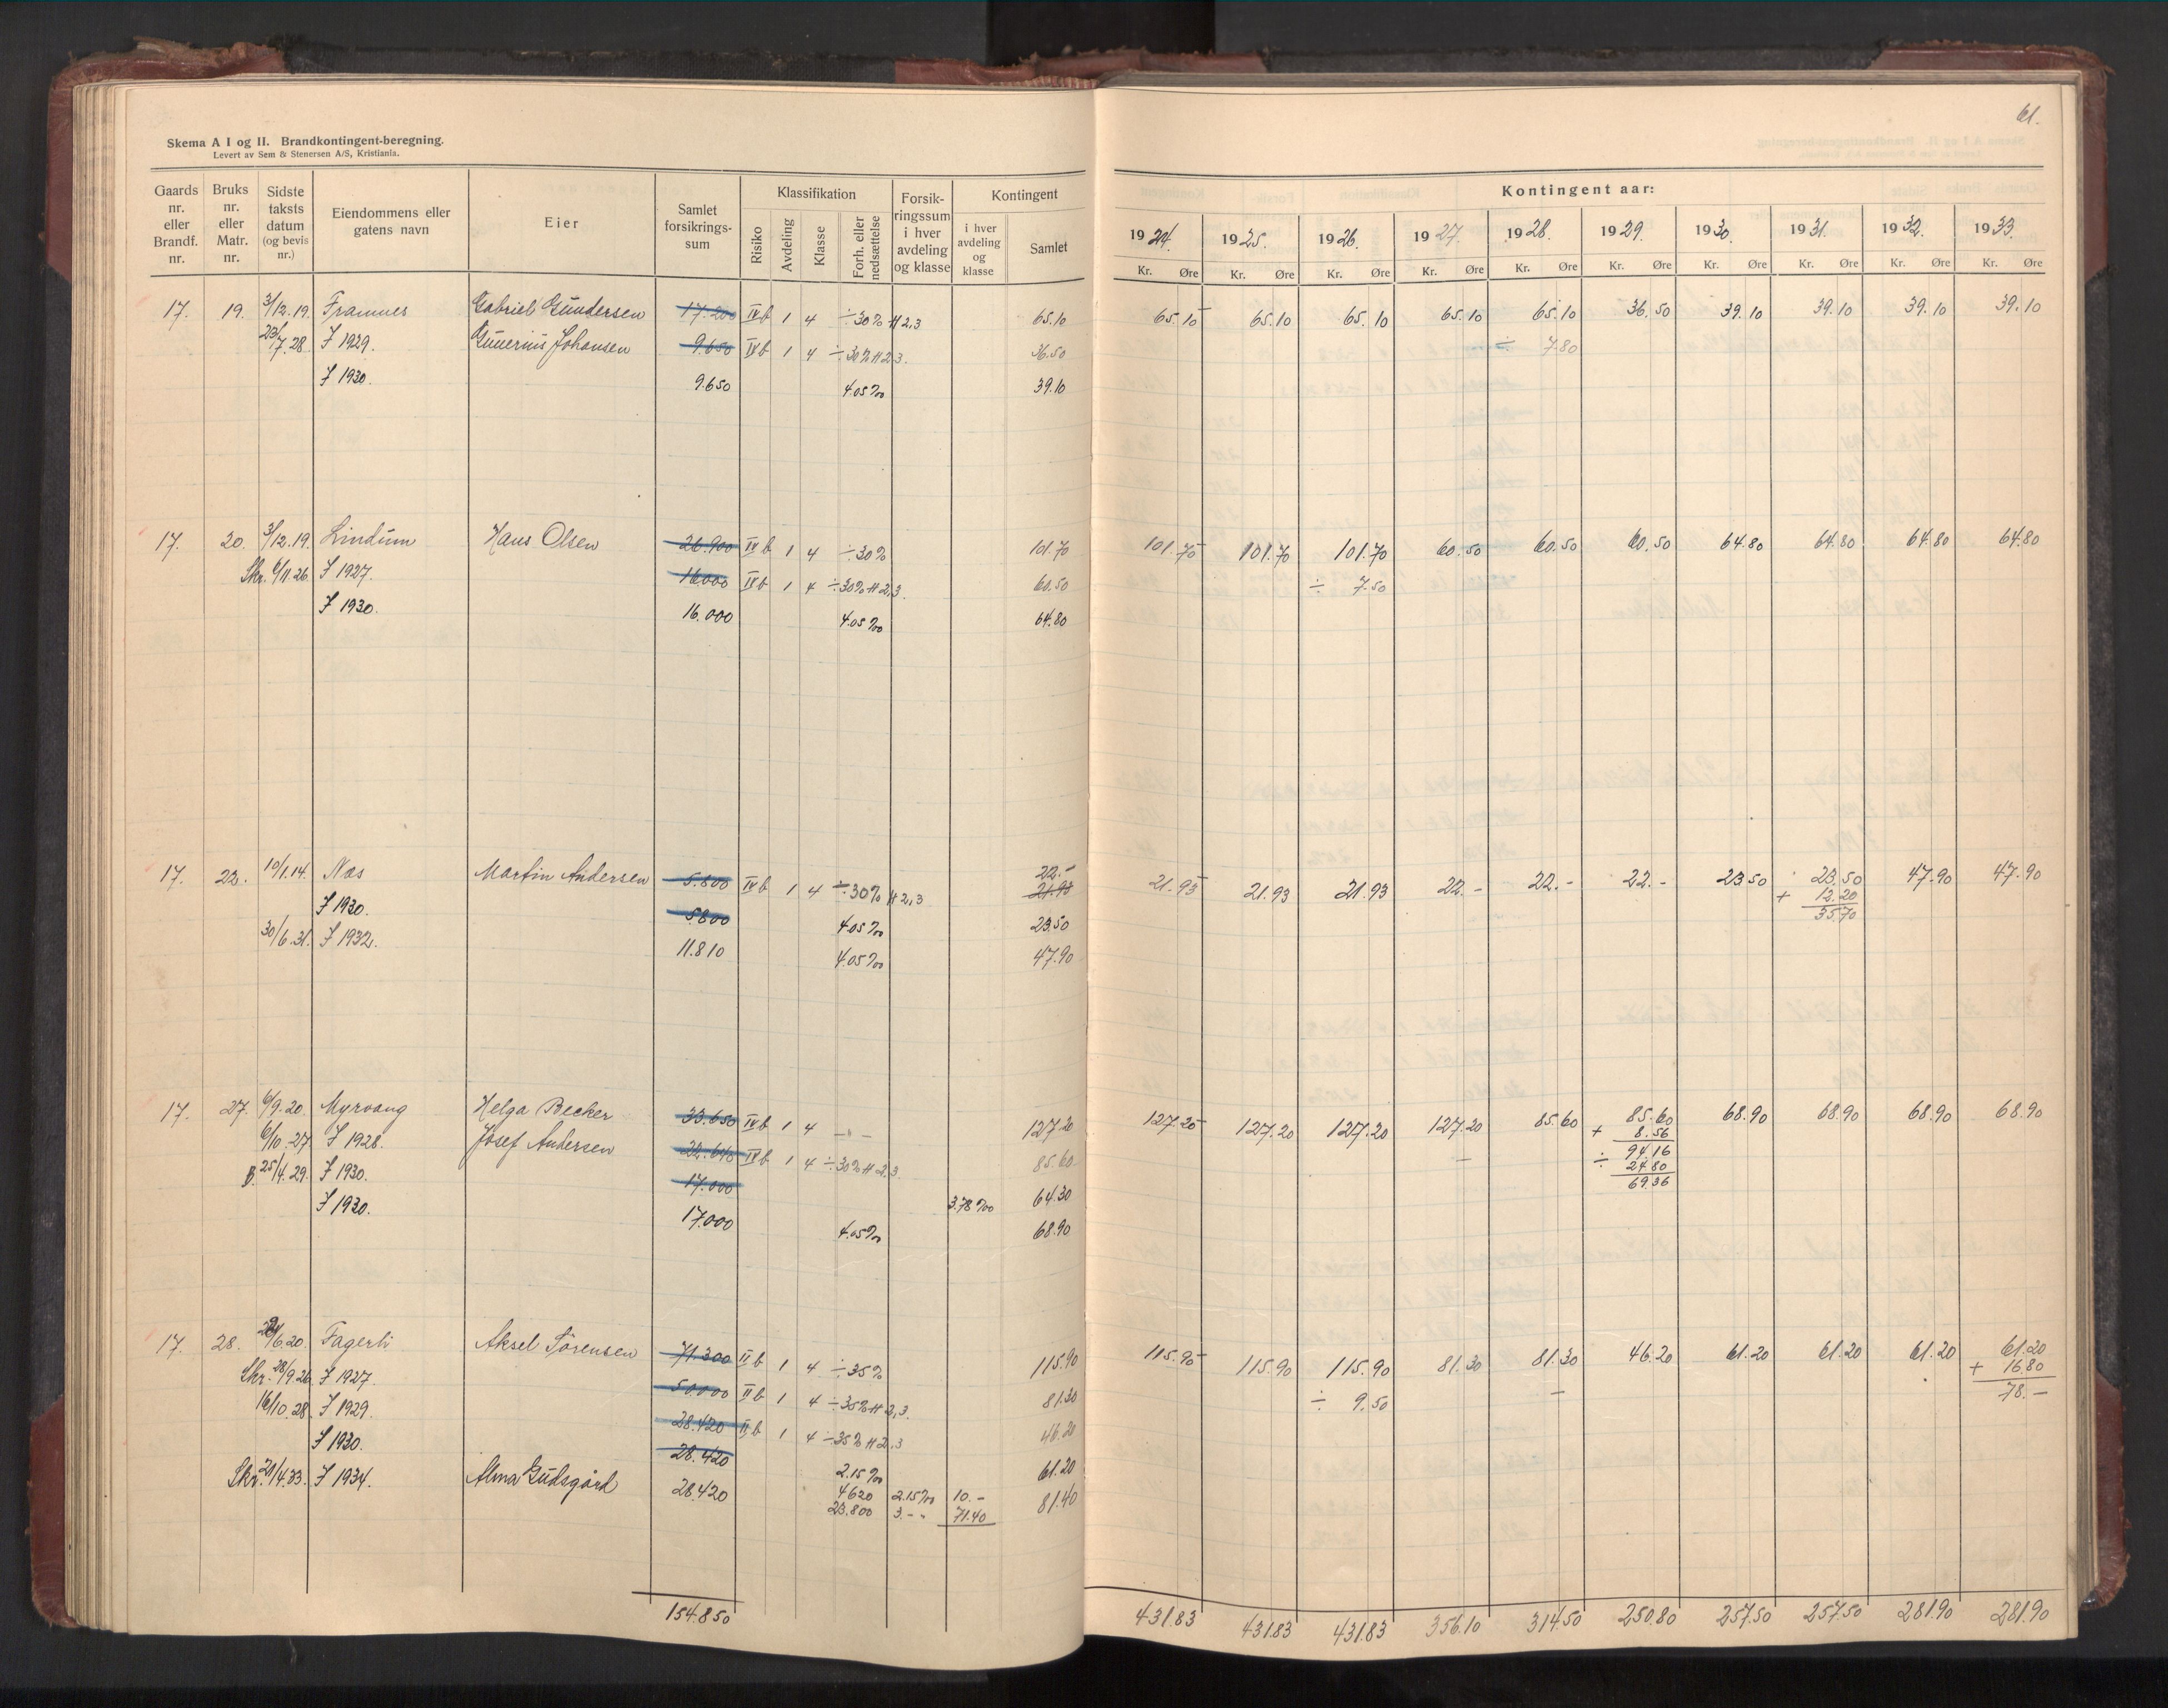 61.
Skema A I og II. Brandkontingent-beregning.
Levert av Sem & Stenersen A/S, Kristiania.
Gaards nr. eller Brandf. nr.
Bruks nr. eller Matr. nr.
Sidste taksts datum (og bevis nr.)
Eiendommens eller gatens navn
Eier
Samlet forsikrings-sum
Klassifikation
Risiko
Avdeling
Klasse
Forh. eller nedsættelse
Forsik-ringssum i hver avdeling og klasse
Kontingent
i hver avdeling og klasse
Samlet
Kontingent aar:
1924. 1925. 1926. 1927. 1928. 1929. 1930. 1931. 1932. 1933.
Kr. Øre Kr. Øre Kr. Øre Kr. Øre Kr. Øre Kr. Øre Kr. Øre Kr. Øre Kr. Øre Kr. Øre
17. 19. 3/12.19. Framnes Gabriel Gundersen 17.200 IV b 1 4 ÷30% H 2,3 65.10 65.10 65.10 65.10 65.10 65.10 36.50 39.10 39.10 39.10 39.10
23/7.28. F 1929. Gunerius Johansen 9.650 IV b 1 4 ÷30% H 2,3. 36.50 ÷ 7.80
F 1930. 9.650 4.05‰ 39.10
17. 20. 3/12.19. Lindum Hans Olsen 26.900 IV b 1 4 ÷30% 101.70 101.70 101.70 101.70 60.50 60.50 60.50 64.80 64.80 64.80 64.80
Skr. 6/11.26. F 1927. 16000 IV b 1 4 ÷30% H 2,3. 60.50 ÷ 7.50
F 1930. 16.000 4.05‰ 64.80
22.-
17. 22. 10/1.14. Nes Martin Andersen 5.800 IV b 1 4 ÷30% H 2,3 21.93 21.93 21.93 21.93 22.- 22.- 22.- 23.50 23.50 47.90 47.90
+ 12.20
F 1930. 5800 4.05‰ 23.50 35.70
30/6.31. F 1932. 11.810 4.05‰ 47.90
17. 27. 6/9.20. Myrvang Helga Becker 33.650 IV b 1 4 - " - 127.20 127.20 127.20 127.20 127.20 85.60 85.60 68.90 68.90 68.90 68.90
+ 8.56
6/10.27 F 1928. Josef Andersen 22.640 IV b 1 4 ÷30% H 2,3. 85.60 — 94.16
÷ 24.80
25/4.29. F 1930. 17.000 3.78‰ 64.30 69.36
F 1930. 17.000 4.05‰ 68.90
17. 28. /6.20. Fagerli Aksel Sörensen 71.300 II b 1 4 ÷35% 115.90 115.90 115.90 115.90 81.30 81.30 46.20 61.20 61.20 61.20 61.20
+ 16.80
Skr. 28/9.26. F 1927. 50000 II b 1 4 ÷35% H 2,3. 81.30 ÷ 9.50 — 78.—
16/10.28. F 1929. 28.420 II b 1 4 ÷35% H 2,3 46.20
F 1930. 28.420 2.15‰ 61.20
Skr. 21/4.33. F 1934. Alma Gudsgård 28.420 4620 2.15‰ 10.- 81.40
23.800 3.- " 71.40
154.850 431.83 431.83 431.83 356.10 314.50 250.80 257.50 257.50 281.90 281.90